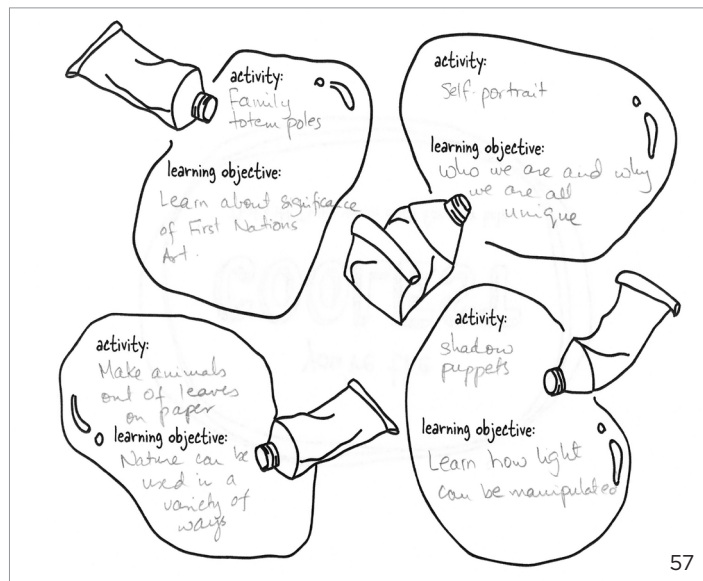 activity:
Family
totem poles
learning objective:
Learn about significance
of First Nations
Art.
activity:
Self-portrait
learning objective:
who we are and why
we are all
unique
activity:
Make animals
out of leaves
on paper
learning objective:
Nature can be
used in a
variety of
ways
activity:
shadow
puppets
learning objective:
Learn how light
can be manipulated
57